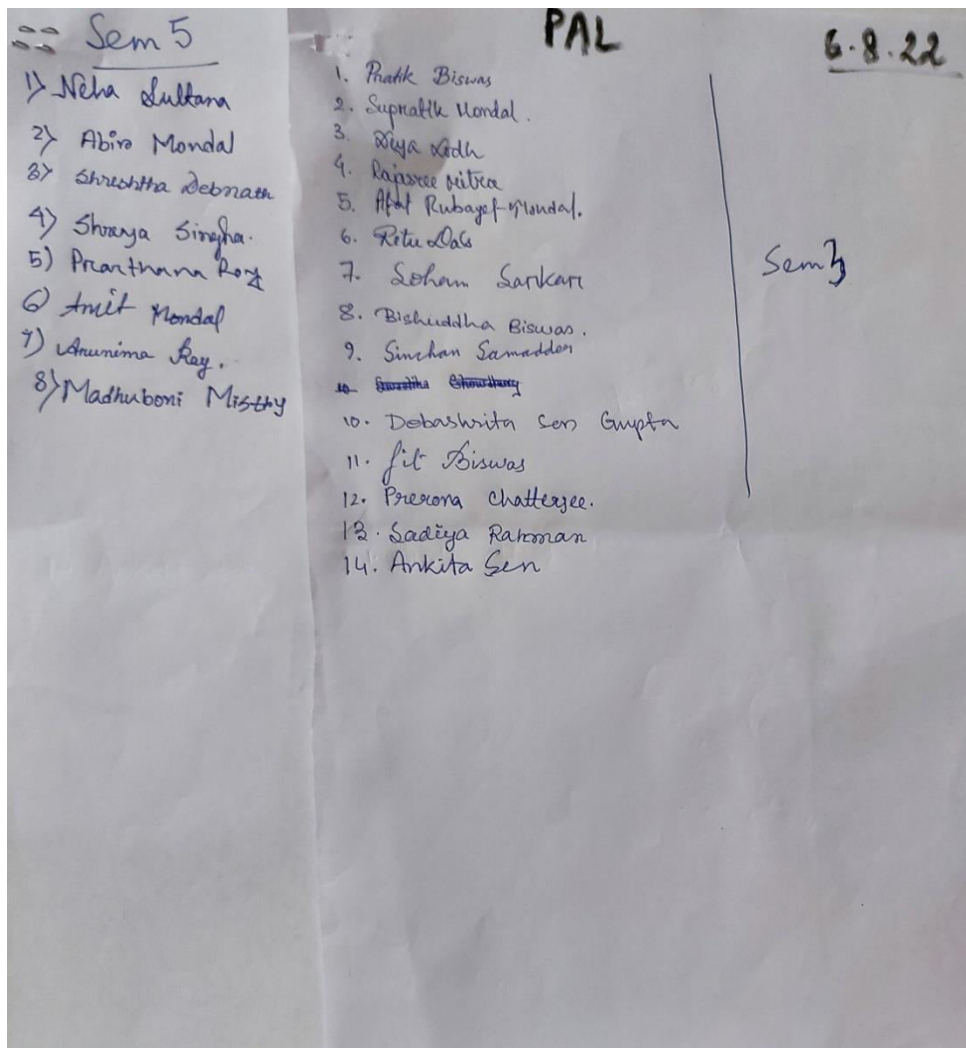 PAL
6.8.22
Sem 5
1) Neha Sultana
2) Abir Mondal
3) Shreshtha Debnath
4) Shreya Singha.
5) Prarthana Roy
6) Amit Mondal
7) Arunima Ray.
8) Madhuboni Mistry
1. Pratik Biswas
2. Supratik Mondal.
3. Diya Lodh
4. Rajasree Mitra
5. Rubayet Mondal.
6. Ritu Das
7. Soham Sarkar
8. Bishuddha Biswas.
9. Sinchan Samadder
10. Debashrita Sen Gupta
11. Jit Biswas
12. Prerona Chatterjee.
13. Sadiya Rahman
14. Ankita Sen
Sem 3